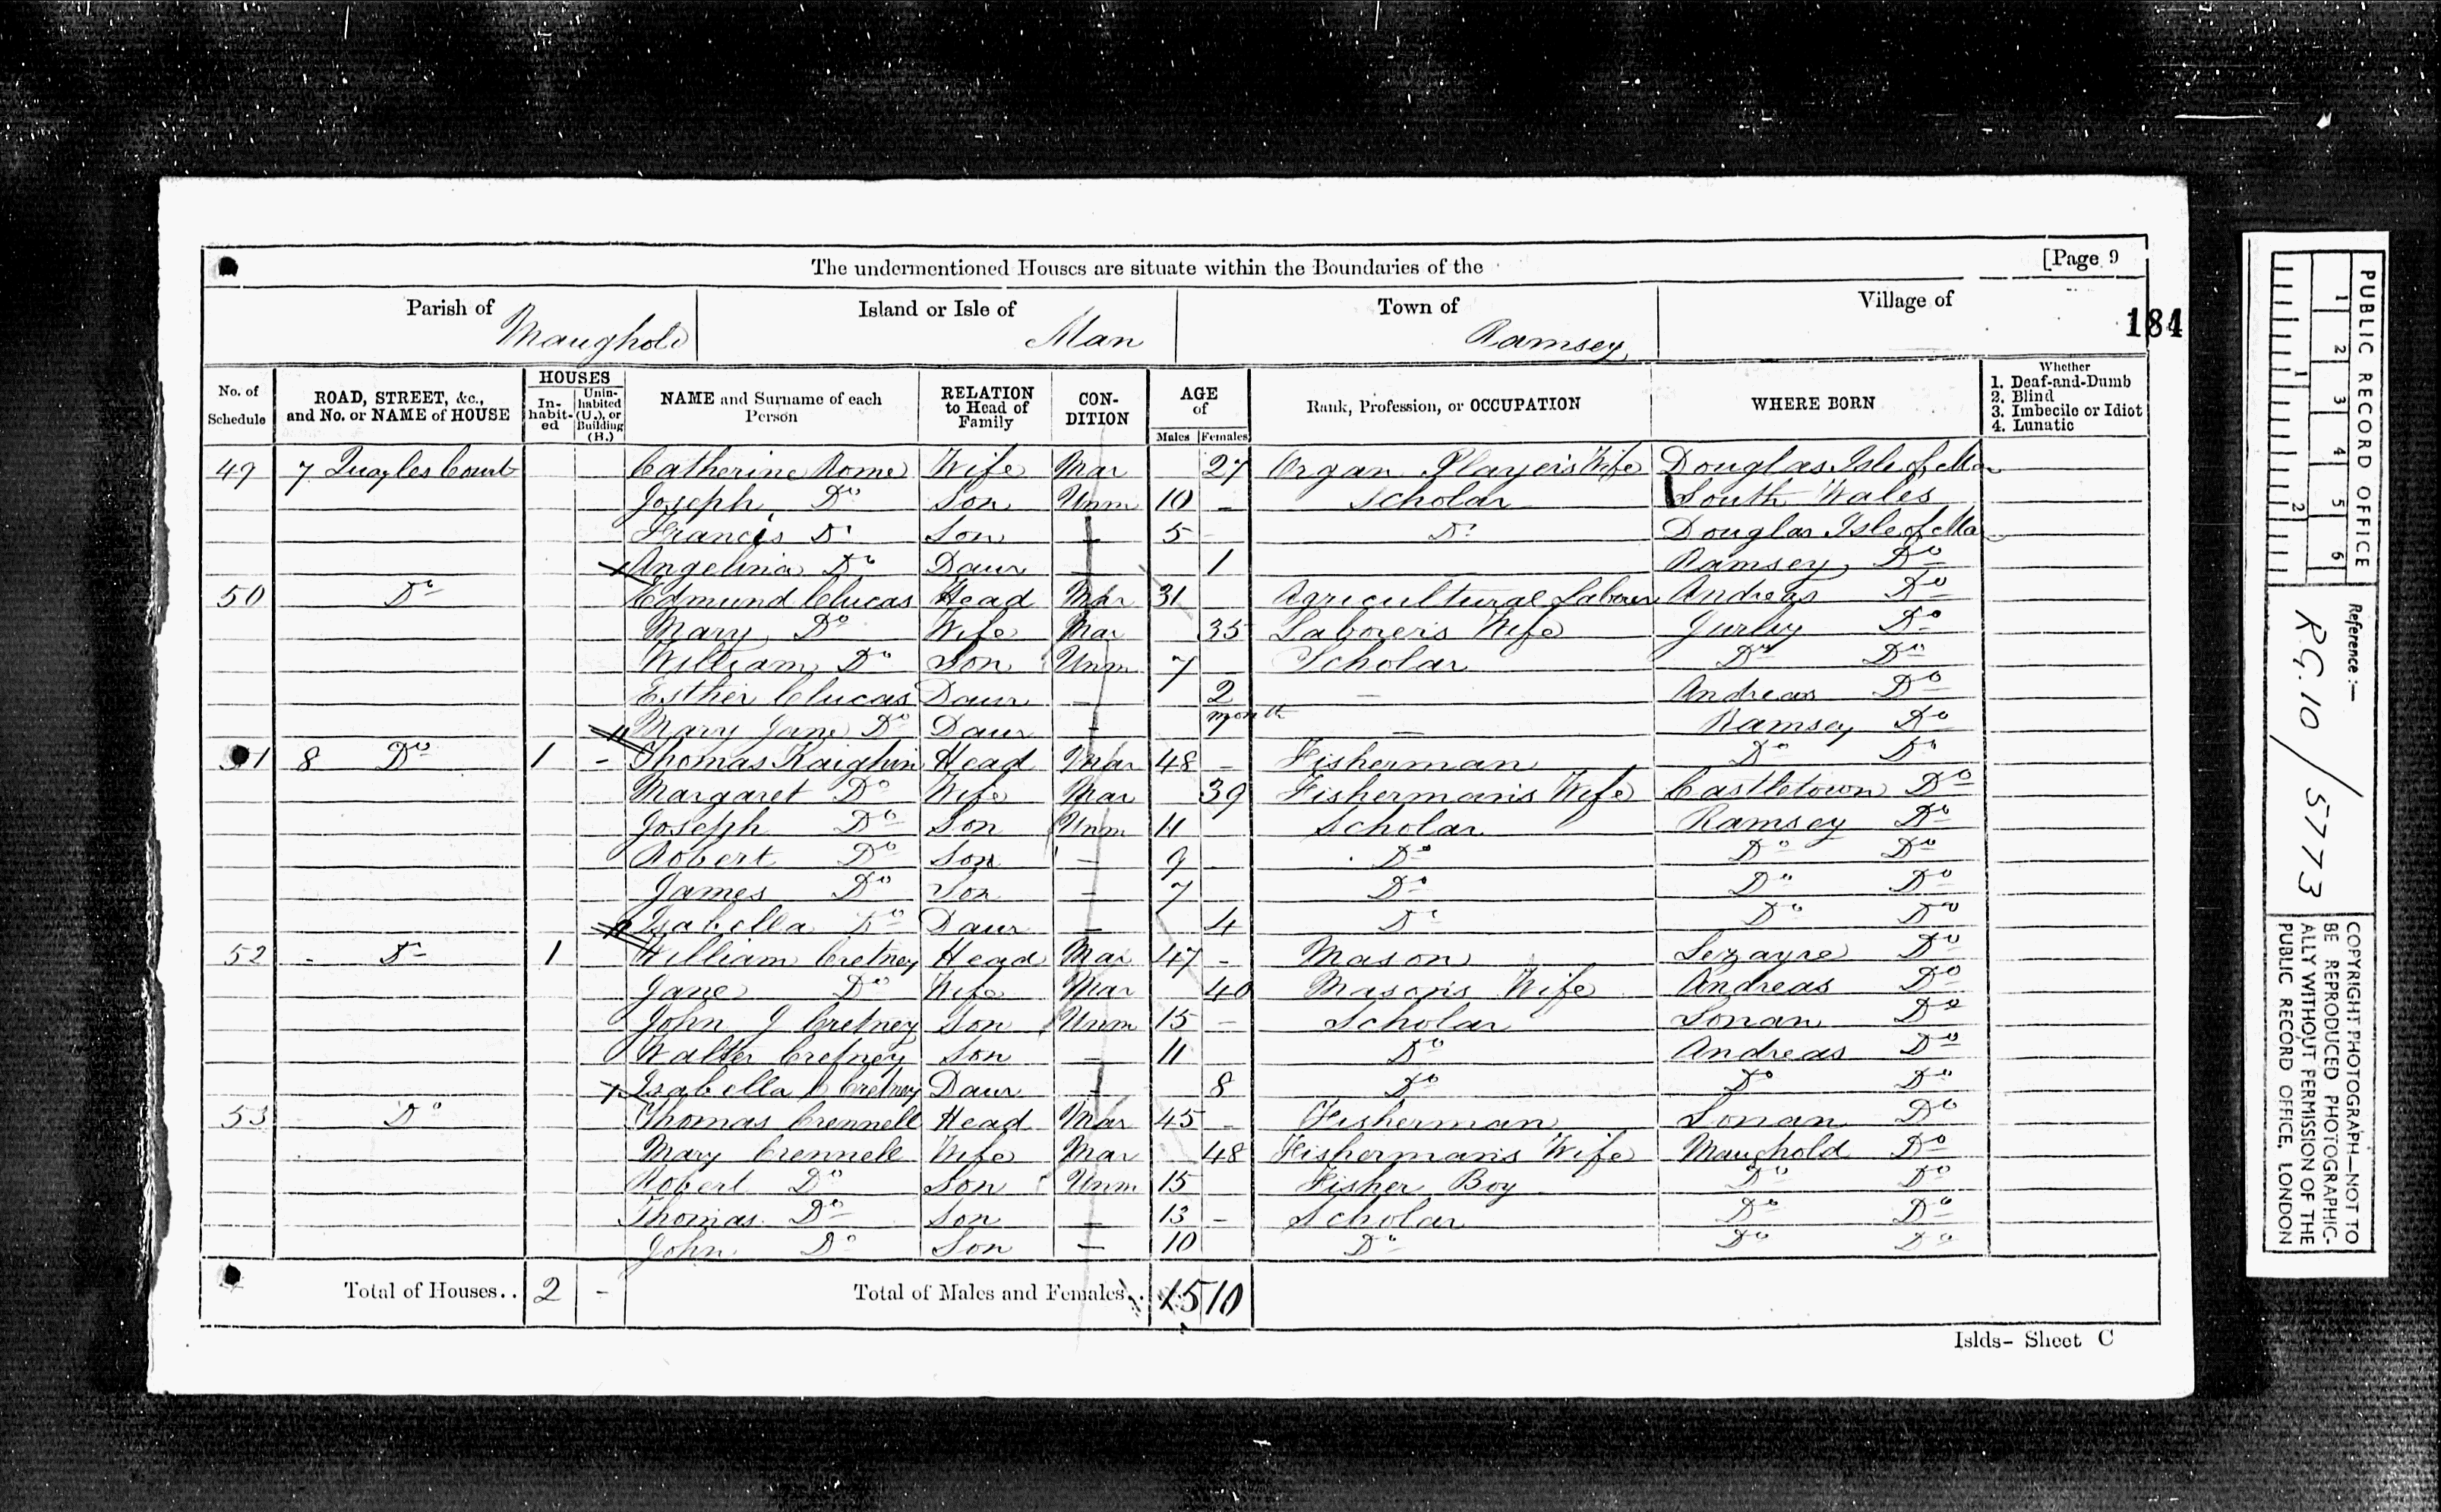 [Page 9
The undermentioned Houses are situate within the Boundaries of the
Parish of Maughold Island or Isle of Man Town of Ramsey Village of
184
No. of Schedule ROAD, STREET, &c., and No. or NAME of HOUSE HOUSES Inhabited Uninhabited (U.), or Building (B.) NAME and Surname of each Person RELATION to Head of Family CONDITION AGE of Males Females Rank, Profession, or OCCUPATION WHERE BORN Whether 1. Deaf-and-Dumb 2. Blind 3. Imbecile or Idiot 4. Lunatic
49 7 Quayles Court Catherine Rome Wife Mar 27 Organ Player's Wife Douglas Isle of Man
Joseph Do Son Unm 10 - Scholar South Wales
Francis Do Son - 5 Do Douglas Isle of Ma
Angelina Do Daur - 1 Ramsey Do
50 Do Edmund Clucas Head Mar 31 Agricultural Laborer Andreas Do
Mary Do Wife Mar 35 Laborers Wife Jurby Do
William Do Son Unm 7 Scholar Do Do
Esther Clucas Daur - 2 - Andreas Do
Mary Jane Do Daur - month - Ramsey Do
51 8 Do 1 - Thomas Kaighin Head Mar 48 - Fisherman Do Do
Margaret Do Wife Mar 39 Fisherman's Wife Castletown Do
Joseph Do Son Unm 11 Scholar Ramsey Do
Robert Do Son - 9 - Do Do Do
James Do Son - 7 Do Do Do
Isabella Do Daur - 4 Do Do Do
52 - Do 1 William Cretney Head Mar 47 - Mason Lezayre Do
Jane Do Wife Mar 40 Mason's Wife Andreas Do
John J Cretney Son Unm 15 - Scholar Lonan Do
Walter Cretney Son - 11 Do Andreas Do
Isabella Cretney Daur - 8 Do Do Do
53 Do Thomas Crennell Head Mar 45 - Fisherman Lonan Do
Mary Crennell Wife Mar 48 Fisherman's Wife Maughold Do
Robert Do Son Unm 15 Fisher Boy Do Do
Thomas Do Son - 13 - Scholar Do Do
John Do Son - 10 Do Do Do
Total of Houses.. 2 - Total of Males and Females.. 15 10
Islds- Sheet C
PUBLIC RECORD OFFICE
1 2 3 4 5 6
1 2
Reference:-
RG.10/5773
COPYRIGHT PHOTOGRAPH—NOT TO
BE REPRODUCED PHOTOGRAPHIC-
ALLY WITHOUT PERMISSION OF THE
PUBLIC RECORD OFFICE, LONDON